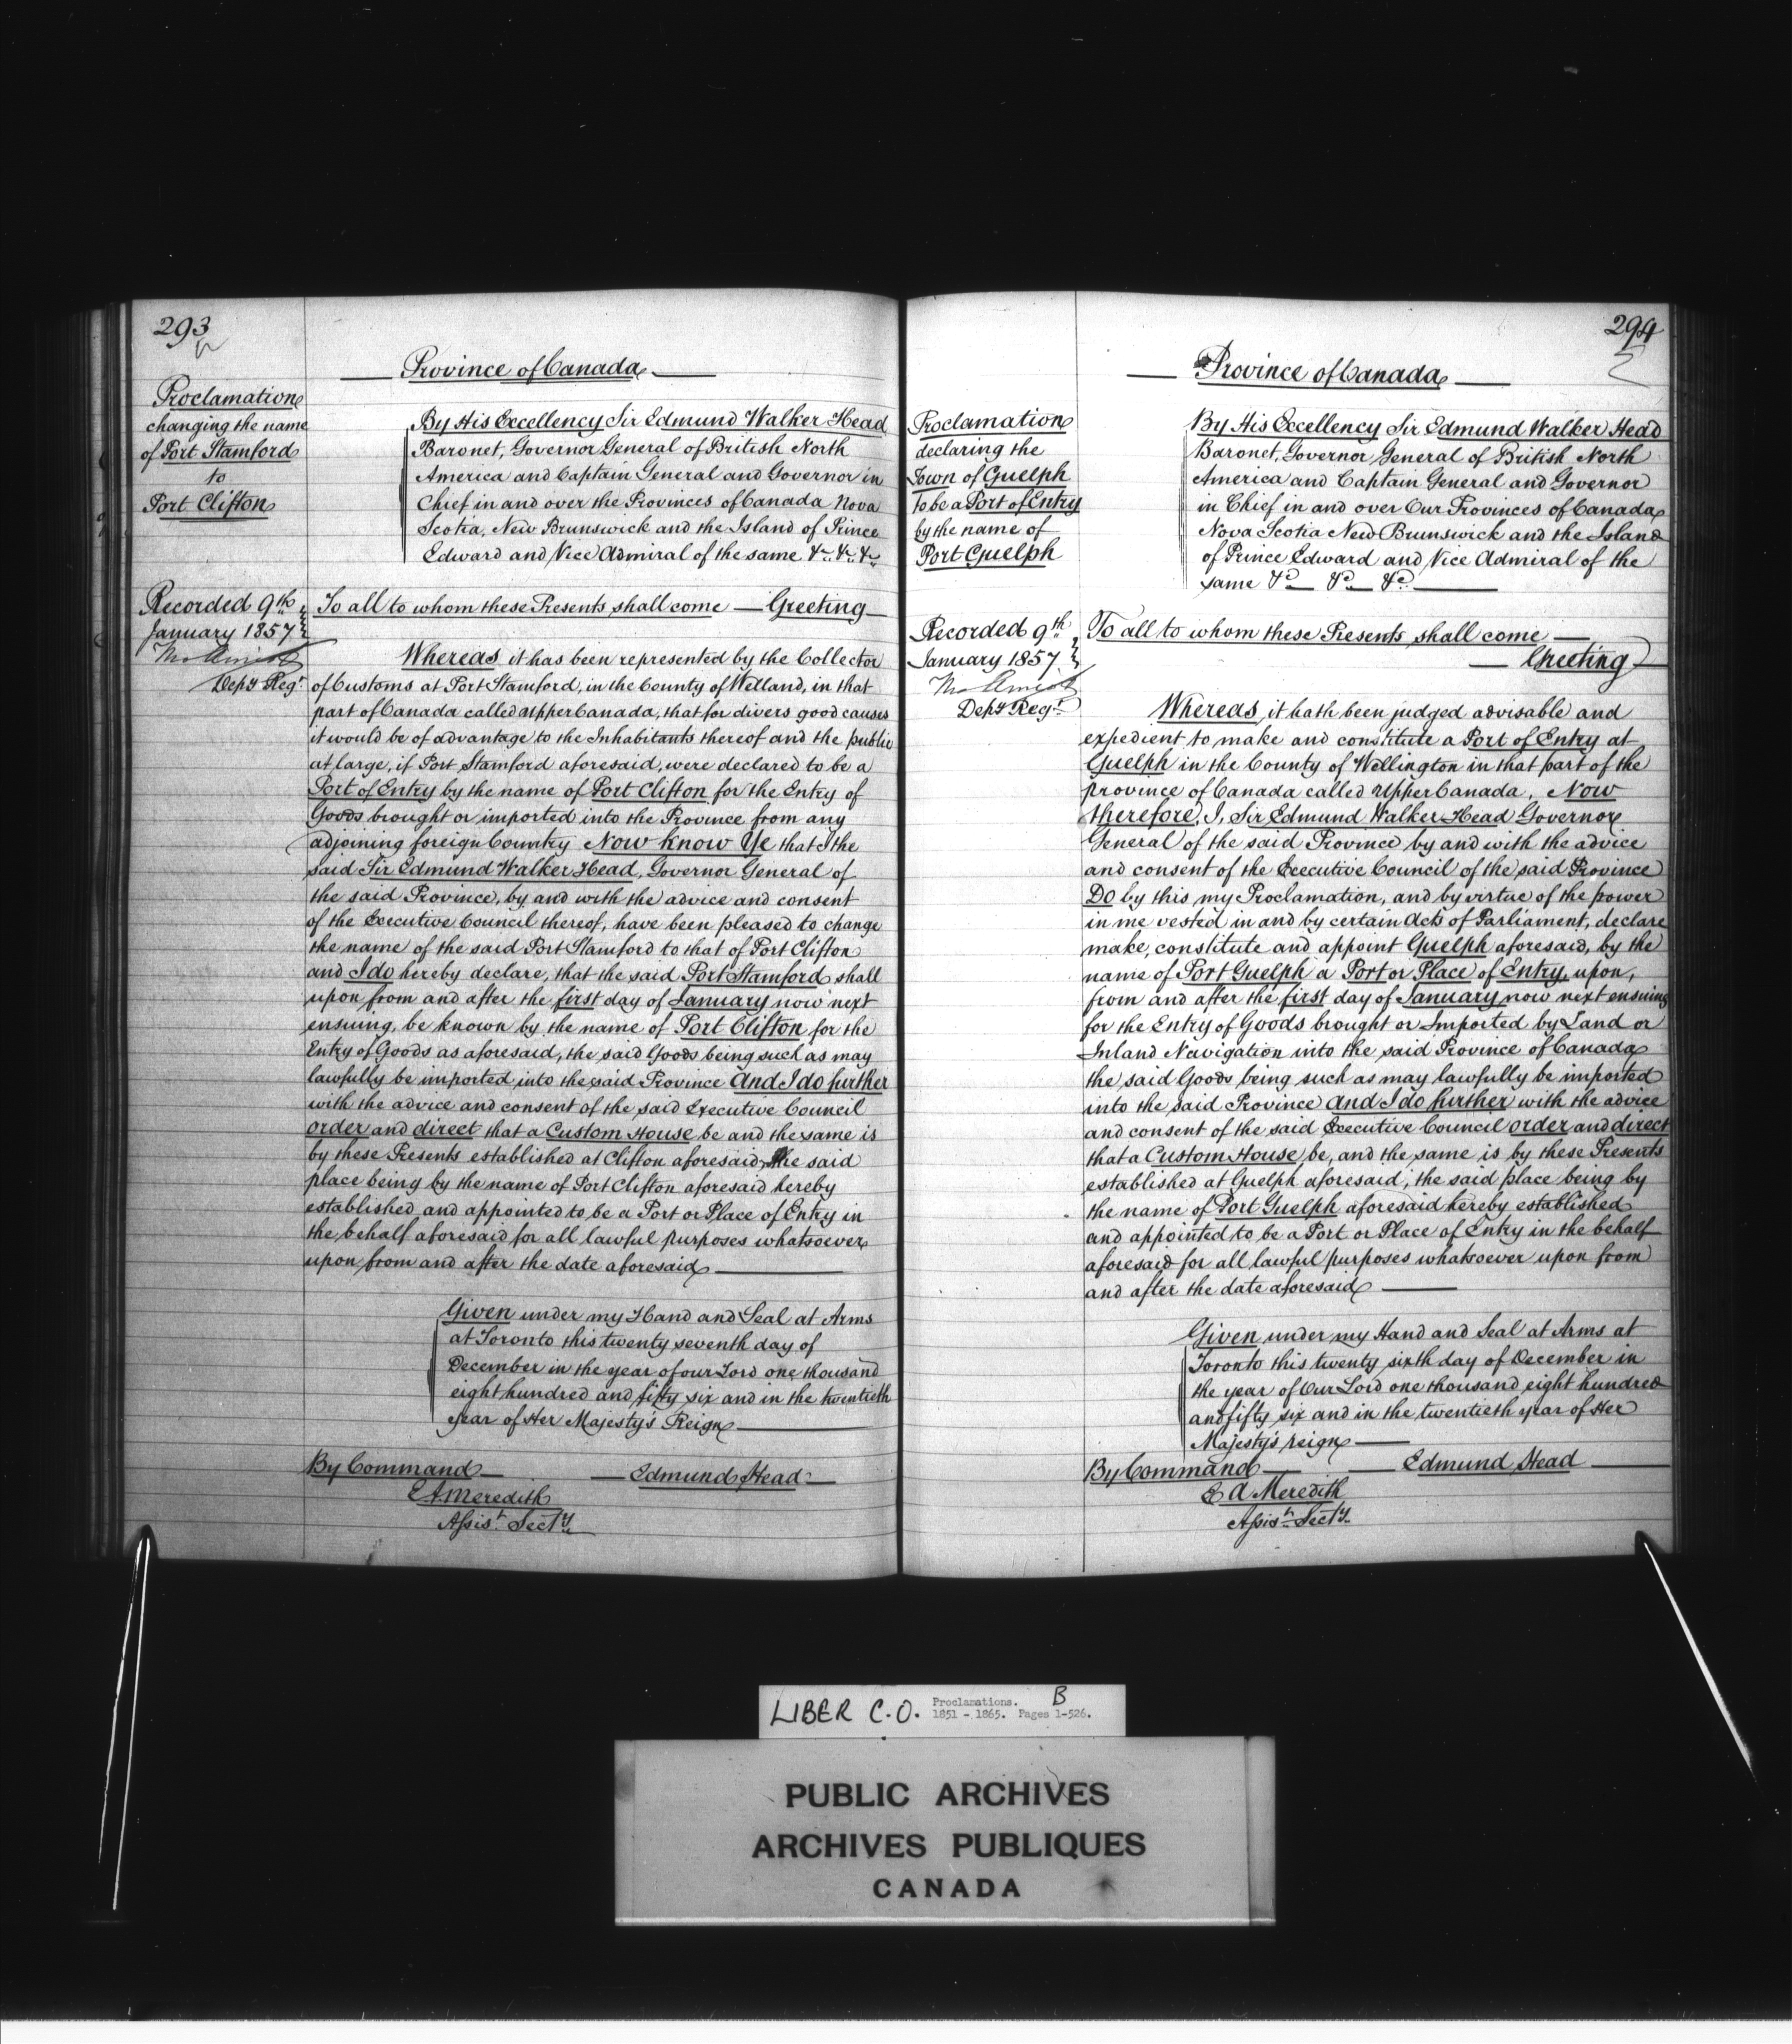 293
Province of Canada
Proclamation
changing the name
of Port Stamford
to
Port Clifton
Recorded 9th
January 1857
Depy Regr
By His Excellency Sir Edmund Walker Head
Baronet, Governor General of British North
America and Captain General and Governor in
Chief in and over the Provinces of Canada Nova
Scotia, New Brunswick and the Island of Prince
Edward and Vice Admiral of the same &c. &c. &c.
To all to whom these Presents shall come — Greeting
Whereas it has been represented by the Collector
of Customs at Port Stamford, in the County of Welland, in that
part of Canada called Upper Canada, that for divers good causes
it would be of advantage to the Inhabitants thereof and the public
at large, if Port Stamford aforesaid, were declared to be a
Port of Entry by the name of Port Clifton for the Entry of
Goods brought or imported into the Province from any
adjoining foreign Country Now Know Ye that I the
said Sir Edmund Walker Head, Governor General of
the said Province, by and with the advice and consent
of the Executive Council thereof, have been pleased to change
the name of the said Port Stamford to that of Port Clifton
and I do hereby declare, that the said Port Stamford shall
upon from and after the first day of January now next
ensuing, be known by the name of Port Clifton for the
Entry of Goods as aforesaid, the said Goods being such as may
lawfully be imported into the said Province And I do further
with the advice and consent of the said Executive Council
order and direct that a Custom House be and the same is
by these Presents established at Clifton aforesaid, the said
place being by the name of Port Clifton aforesaid hereby
established and appointed to be a Port or Place of Entry in
the behalf aforesaid for all lawful purposes whatsoever
upon from and after the date aforesaid
Given under my Hand and Seal at Arms
at Toronto this twenty seventh day of
December in the year of our Lord one thousand
eight hundred and fifty six and in the twentieth
year of Her Majesty's Reign
By Command — Edmund Head
E A Meredith
Assist. Secty
294
Province of Canada
Proclamation
declaring the
Town of Guelph
to be a Port of Entry
by the name of
Port Guelph
Recorded 9th
January 1857
Depy Regr
By His Excellency Sir Edmund Walker Head
Baronet, Governor General of British North
America and Captain General and Governor
in Chief in and over Our Provinces of Canada
Nova Scotia New Brunswick and the Island
of Prince Edward and Vice Admiral of the
same &c &c &c
To all to whom these Presents shall come —
— Greeting
Whereas it hath been judged advisable and
expedient to make and constitute a Port of Entry at
Guelph in the County of Wellington in that part of the
province of Canada called Upper Canada, Now
therefore, I, Sir Edmund Walker Head Governor
General of the said Province by and with the advice
and consent of the Executive Council of the said Province
Do by this my Proclamation, and by virtue of the power
in me vested in and by certain Acts of Parliament, declare
make, constitute and appoint Guelph aforesaid, by the
name of Port Guelph a Port or Place of Entry, upon,
from and after the first day of January now next ensuing
for the Entry of Goods brought or Imported by Land or
Inland Navigation into the said Province of Canada
the said Goods being such as may lawfully be imported
into the said Province And I do further with the advice
and consent of the said Executive Council order and direct
that a Custom House be, and the same is by these Presents
established at Guelph aforesaid, the said place being by
the name of Port Guelph aforesaid hereby established
and appointed to be a Port or Place of Entry in the behalf
aforesaid for all lawful purposes whatsoever upon from
and after the date aforesaid
Given under my Hand and Seal at Arms at
Toronto this twenty sixth day of December in
the year of Our Lord one thousand eight hundred
and fifty six and in the twentieth year of Her
Majesty's reign
By Command — Edmund Head
E A Meredith
Assist. Secty.
LIBER C.O. Proclamations. B
1851 - 1865. Pages 1-526.
PUBLIC ARCHIVES
ARCHIVES PUBLIQUES
CANADA